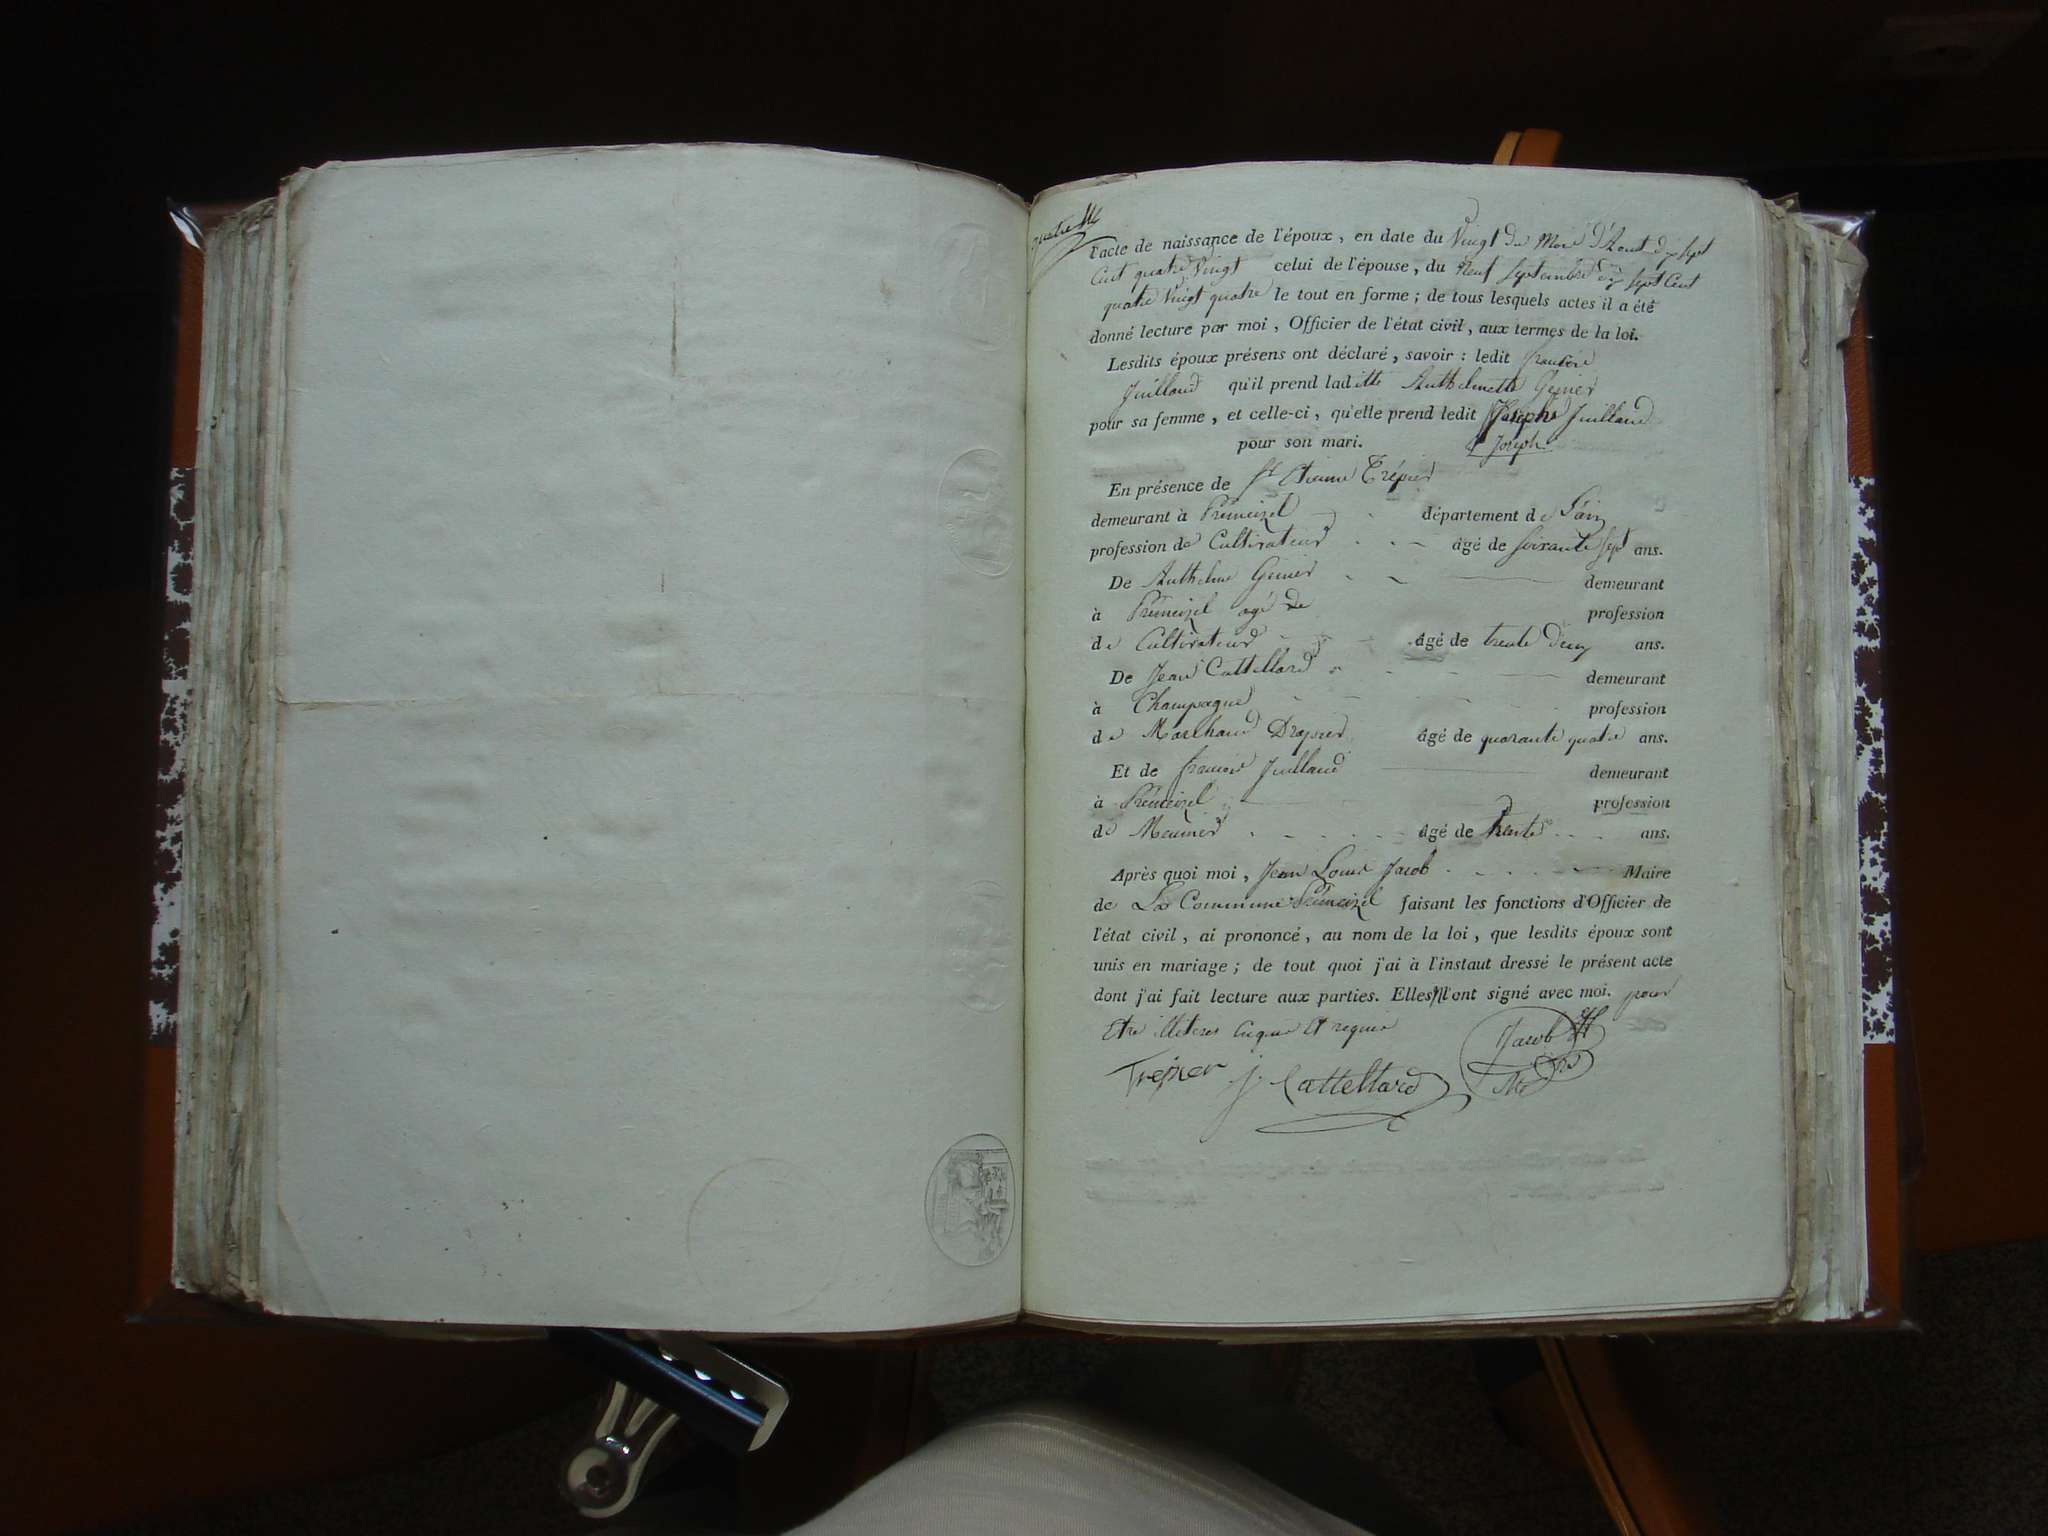 l'acte de naissance de l'époux, en date du Vingt du Mois d'Aout dix sept
Cent quatre Vingt celui de l'épouse, du Neuf Septembre dix sept Cent
quatre Vingt quatre le tout en forme ; de tous lesquels actes il a été
donné lecture par moi, Officier de l'état civil, aux termes de la loi.
Lesdits époux présens ont déclaré, savoir : ledit
Juilland qu'il prend laditte Anthelmette Genier
pour sa femme, et celle-ci, qu'elle prend ledit Joseph Juilland
pour son mari. Joseph
En présence de Sr Etienne Trépier
demeurant à Prémeizel département de L'ain
profession de Cultivateur âgé de soixante sept ans.
De Anthelme Genier demeurant
à Prémeizel agé de profession
de Cultivateur âgé de trente deux ans.
De Jean Cattellard demeurant
à Champagne profession
de Marchand Drapier âgé de quarante quatre ans.
Et de francois Juilland demeurant
à Prémeizel profession
de Meunier âgé de trente ans.
Après quoi moi, Jean Louis Jacob Maire
de La Commune Prémeizel faisant les fonctions d'Officier de
l'état civil, ai prononcé, au nom de la loi, que lesdits époux sont
unis en mariage ; de tout quoi j'ai à l'instaut dressé le présent acte
dont j'ai fait lecture aux parties. Elles l'ont signé avec moi. pour
Etre illiteres Enquis Et requis
Jacob
Trépier J. Cattellard